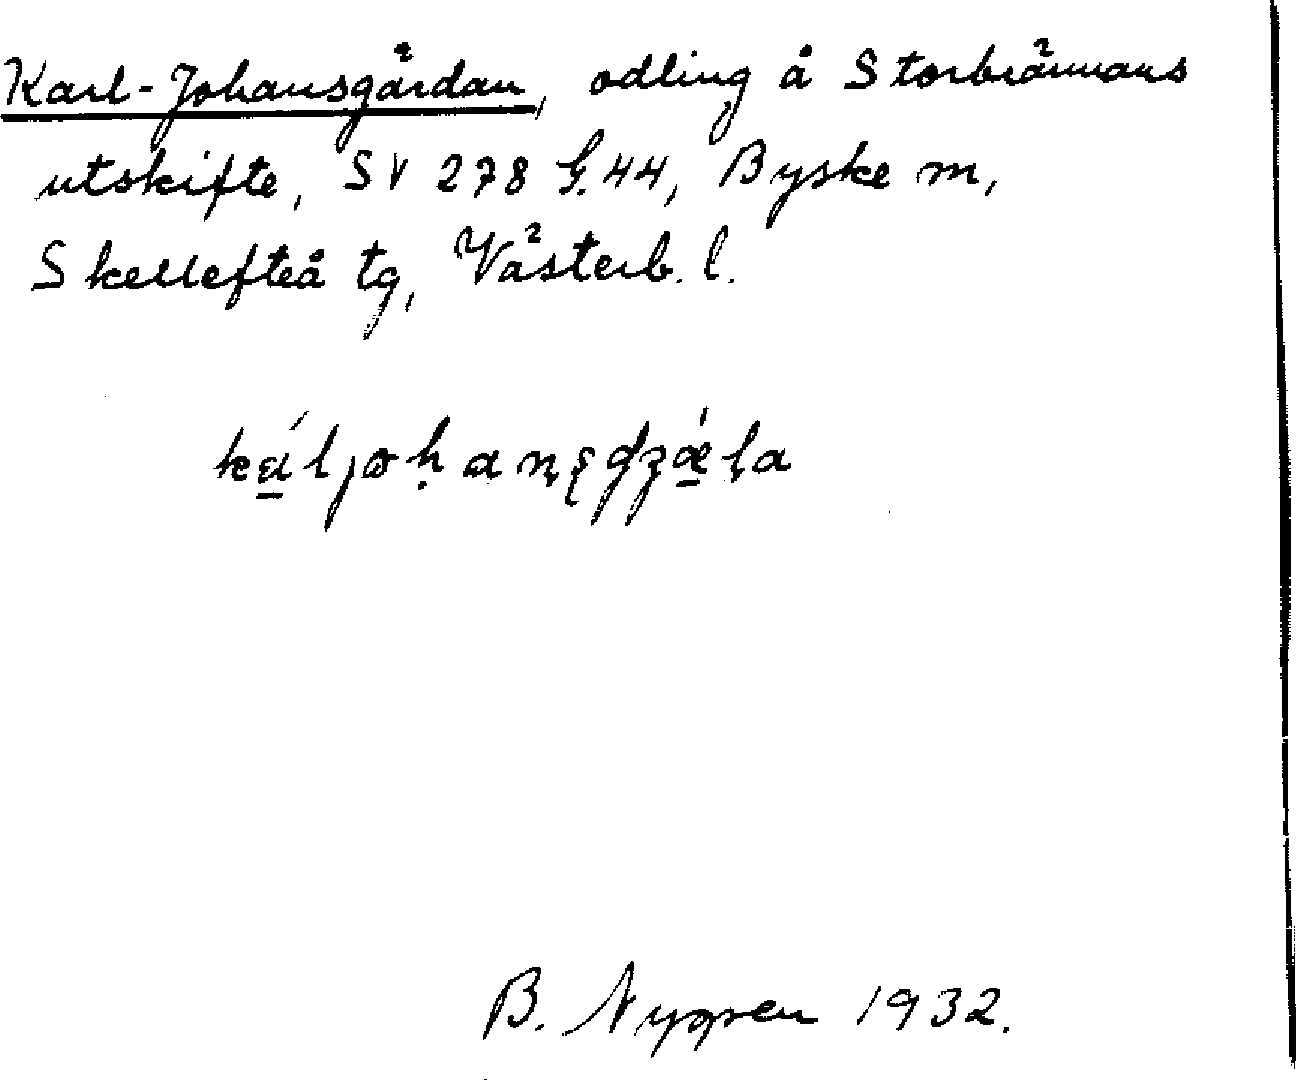 Karl-Johansgärdan, odling å Storbrännans
utskifte, SV 278 G.44, Byske sn,
Skellefteå tg, Västerb. l.
B. Nygren 1932.